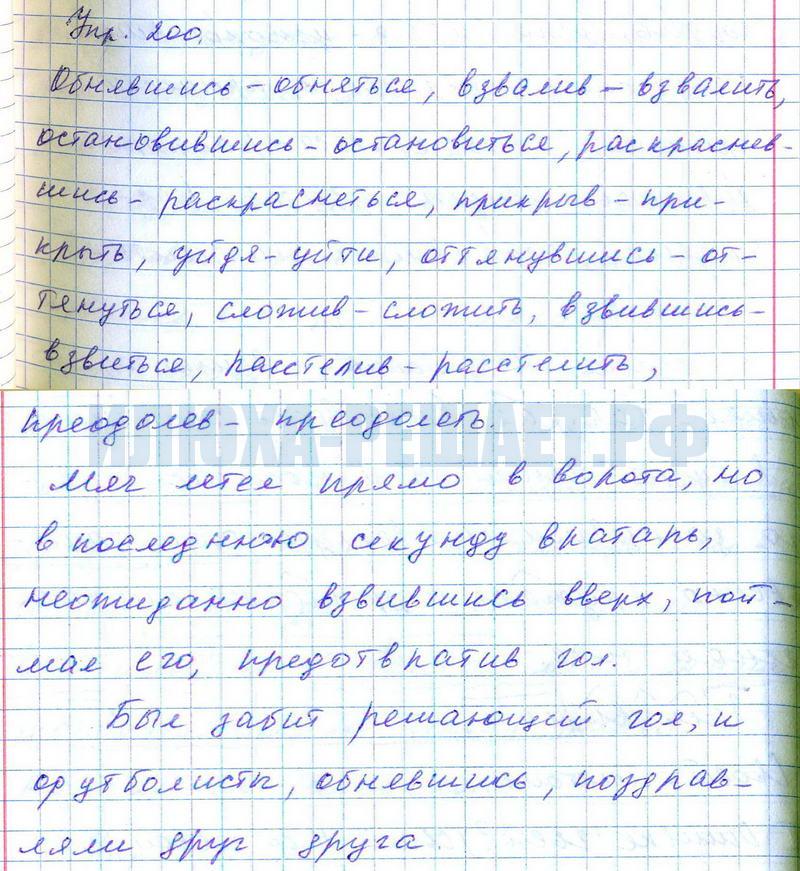 Упр. 200.
Обнявшись – обняться, взвалив – взвалить,
остановившись – остановиться, раскраснев-
шись – раскраснеться, прикрыв – при-
крыть, уйдя – уйти, оттянувшись – от-
тянуться, сложив – сложить, взвившись –
взвиться, расстелив – расстелить,
преодолев – преодолеть.
ИЛЮХА-РЕШАЕТ.РФ
Мяч летел прямо в ворота, но
в последнюю секунду вратарь,
неожиданно взвившись вверх, пой-
мал его, предотвратив гол.
Был забит решающий гол, и
футболисты, обнявшись, поздрав-
ляли друг друга.